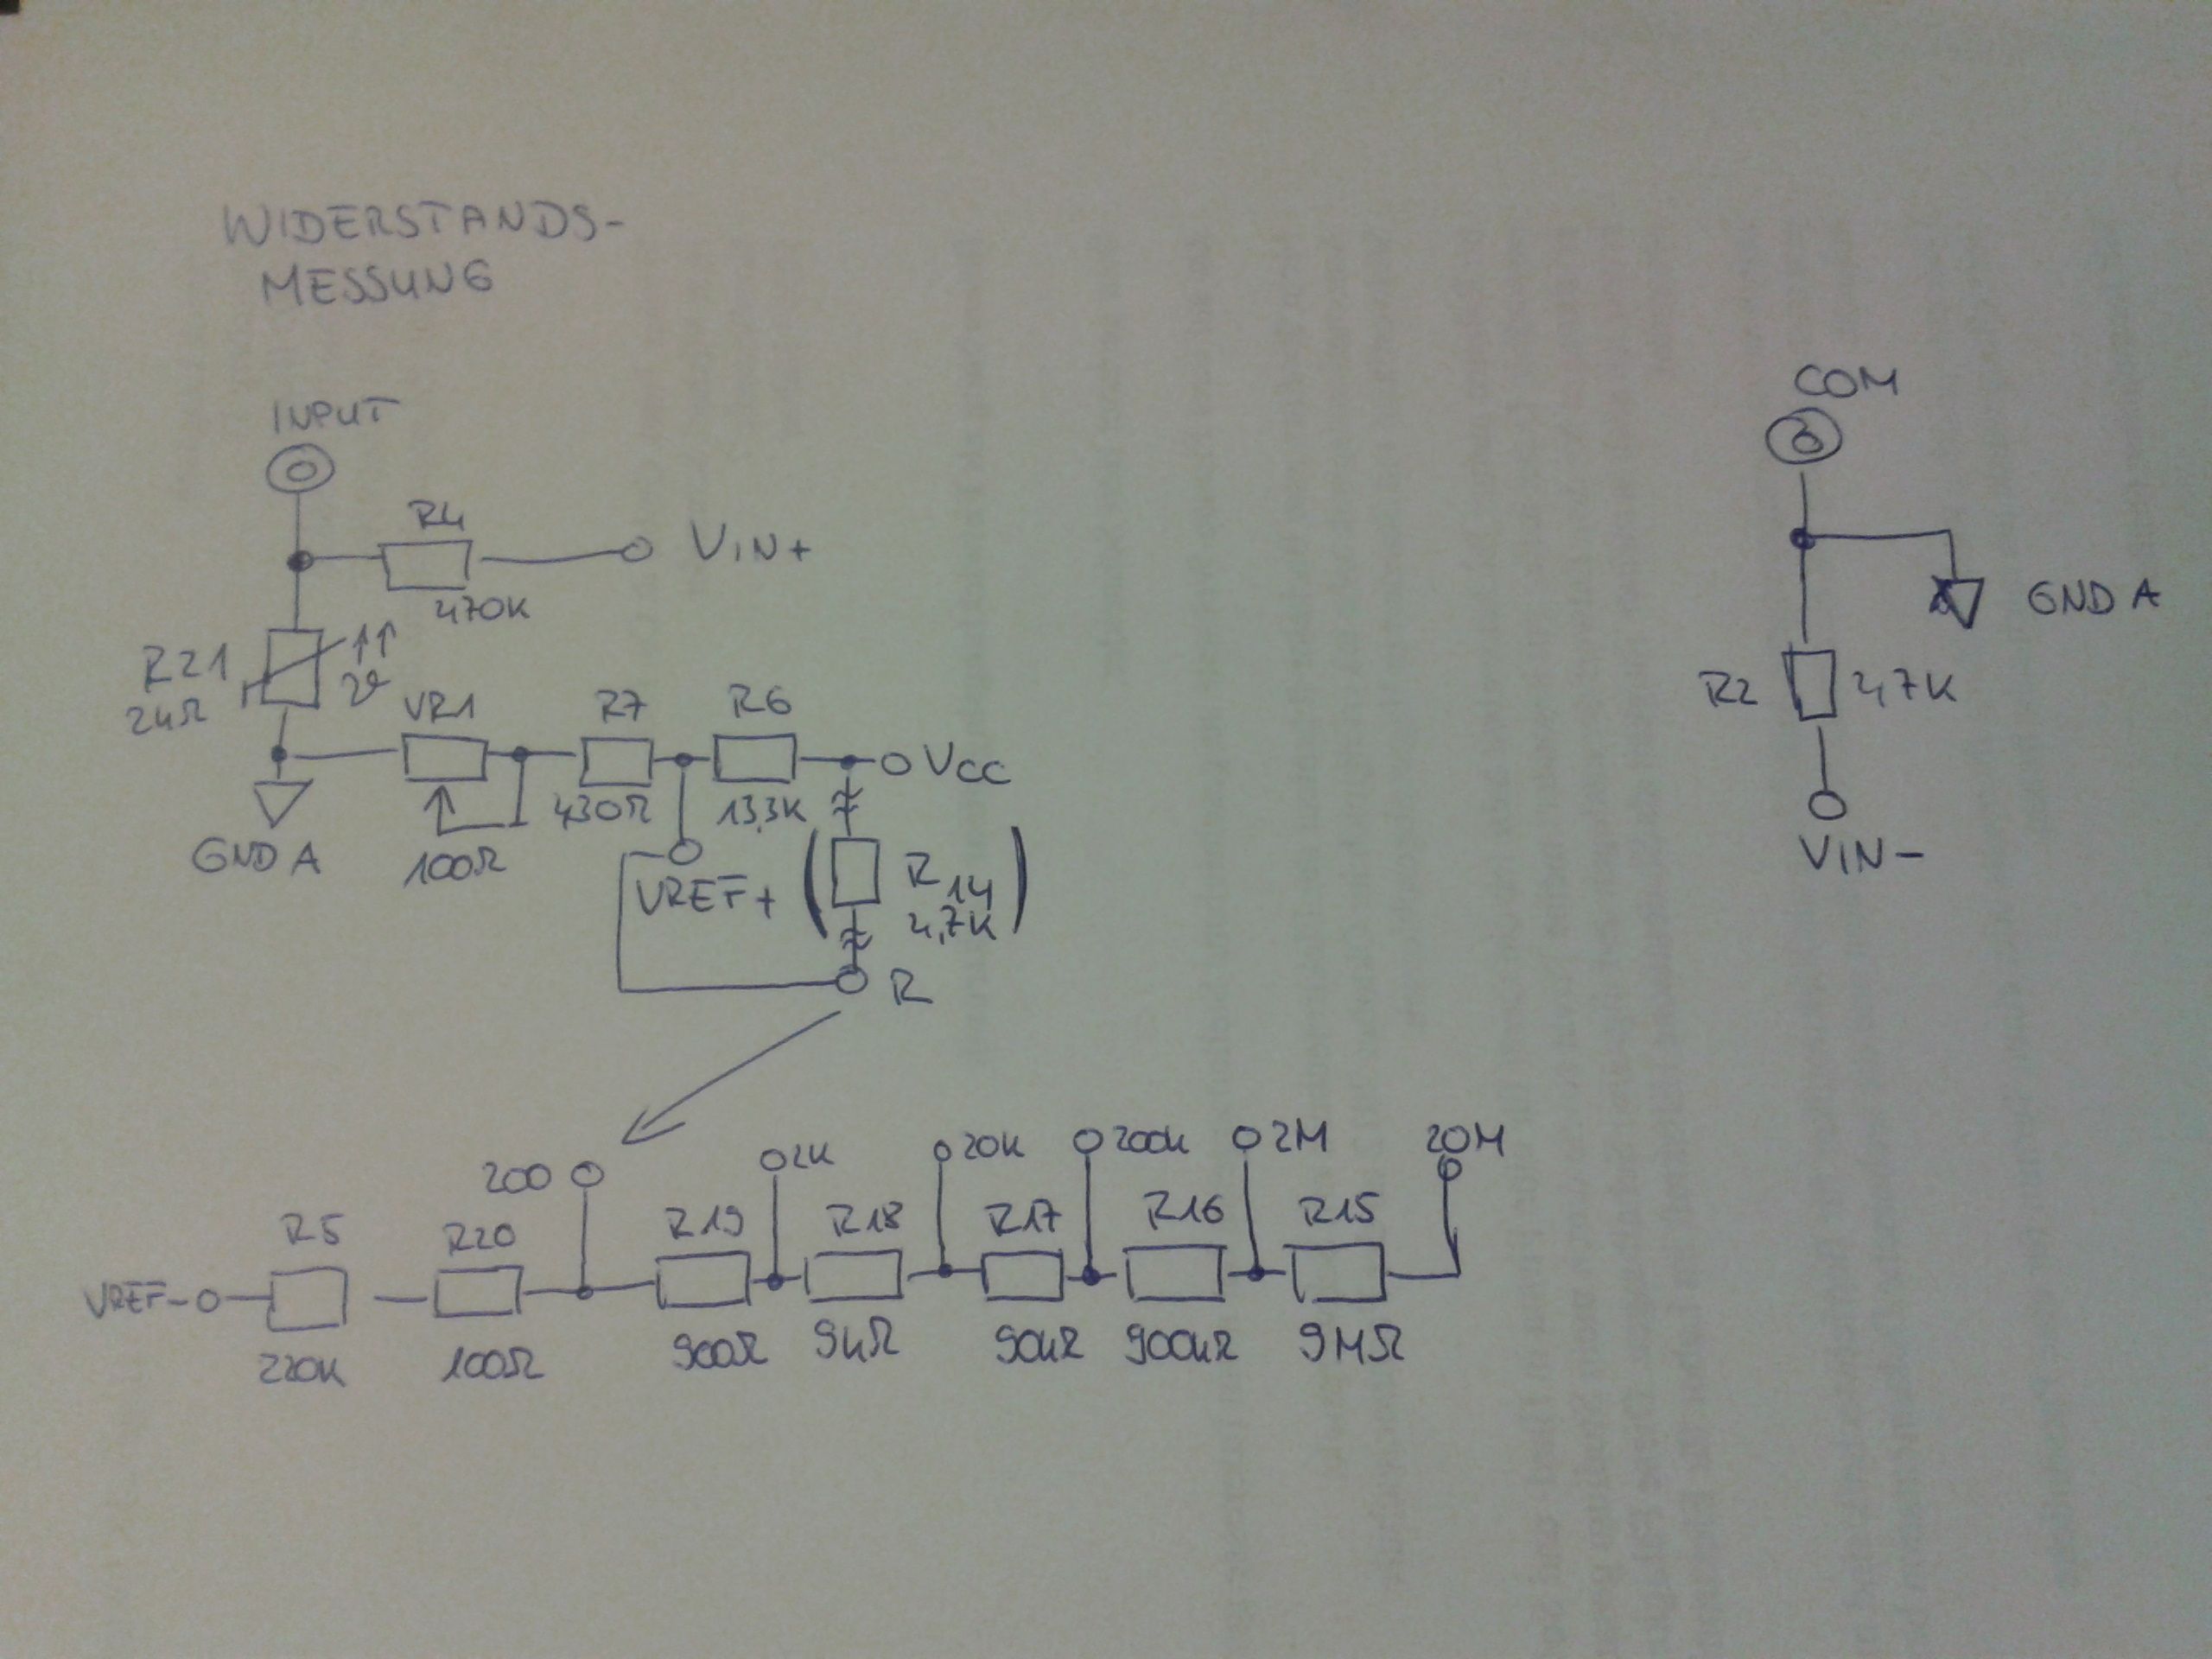 WIDERSTANDS-
MESSUNG
INPUT
COM
R4
VIN+
470K
GND A
R21
24Ω
ϑ
VR1
R7
R6
R2
4,7K
VCC
430Ω
13,3K
GND A
100Ω
VREF+
R14
4,7K
VIN-
R
200
2K
20K
200K
2M
20M
R5
R20
R19
R18
R17
R16
R15
VREF-
220K
100Ω
900Ω
9kΩ
90kΩ
900kΩ
9MΩ